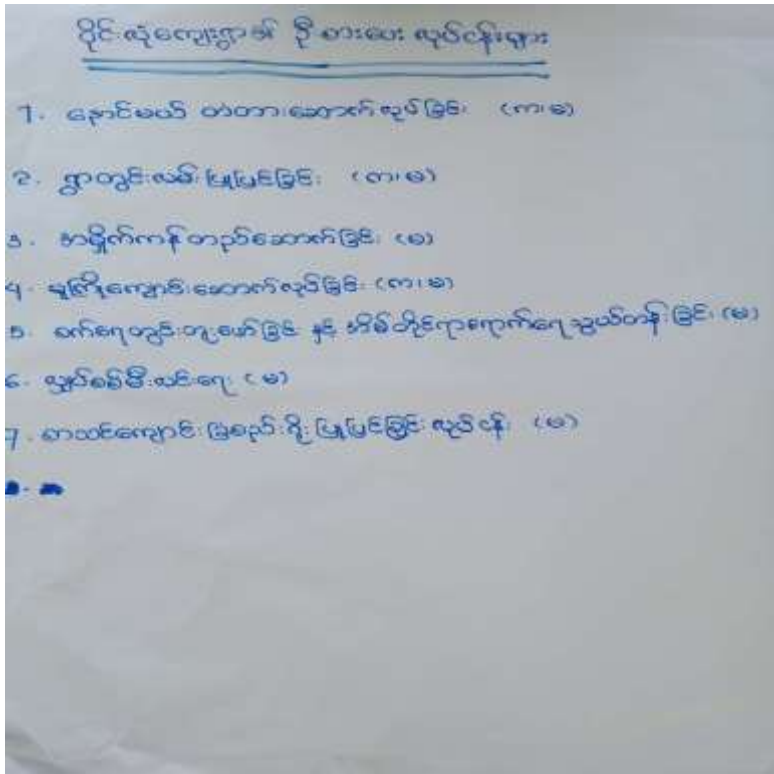 ဝိုင်းလုံကျေးရွာ၏ ဦးစားပေး လုပ်ငန်းများ
1. နောင်မယ် တံတားဆောက်လုပ်ခြင်း (ကျ၊မ)
2. ရွာတွင်းလမ်းပြုပြင်ခြင်း (ကျ၊မ)
3. အမှိုက်ကန်တည်ဆောက်ခြင်း (မ)
4. မူကြိုကျောင်းဆောက်လုပ်ခြင်း (ကျ၊မ)
5. စက်ရေတွင်းတူးဖော်ခြင်း နှင့် အိမ်တိုင်ရာရောက်ရေသွယ်တန်းခြင်း (မ)
6. လျှပ်စစ်မီးလင်းရေး (မ)
7. စာသင်ကျောင်းခြံစည်းရိုးပြုပြင်ခြင်းလုပ်ငန်း (မ)